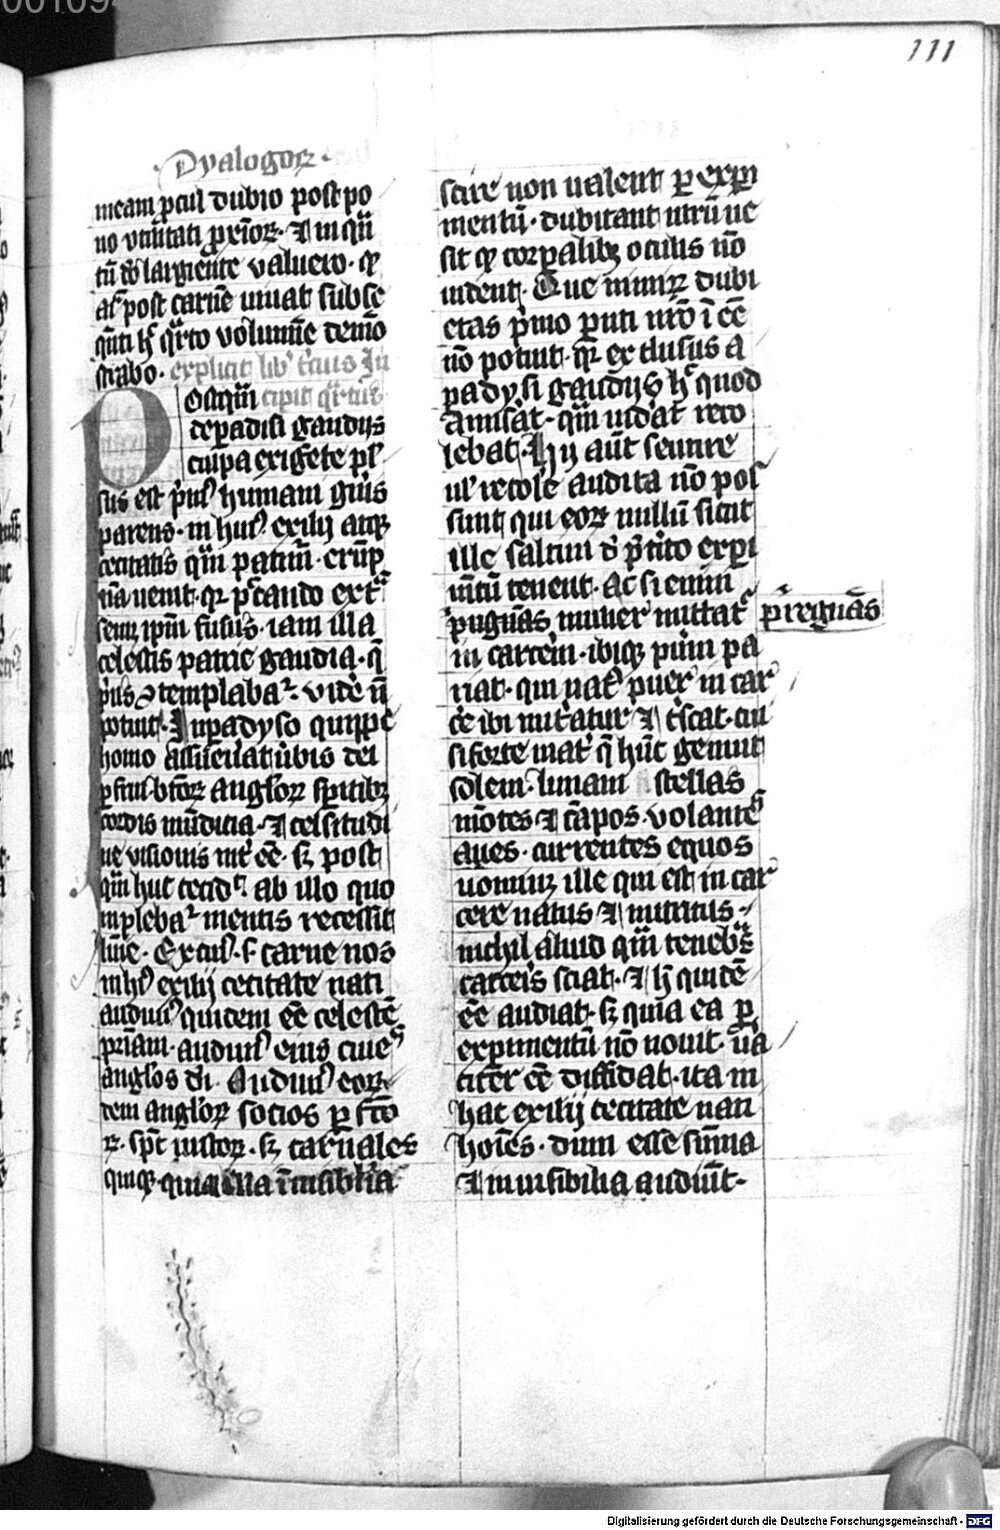 111
Dyalogoꝝ
meam ꝓcul dubio postpo
no vtilitati ꝓximoꝝ · ⁊ in qͣn
tū dn̄s largiente valuero · qͥ
aīa post carnē viuat subse
qn̄ti h̓ qͣrto volumīe demō
strabo · explicit lib᷒ tͨius In
Ostqͣm cipit qͣrtus
de paradisi gaudiis
culpa exigēte pͧl
sus est pͥm᷒ humani gn̄is
parens · in hui᷒ exilij atqꝫ
cecitatis qͣm patim᷑ · erūp
nā uenit · qꝛ pctando extͣ
semꝫ ipm̄ fusus · iam illa
celestis patrie gaudia · q̄
pͥus ꝯtemplabat᷑ · vide n̄
potuit · In padyso quippe
homo assueuat ūbis dei
ꝑfrui · btōꝝ angl̓oꝝ spiritibꝫ
cordis mūdicia · ⁊ celsitudi
ne visionis int̓ eē · sꝫ postq
qͣm huc cecid᷑ ab illo quo
implebat᷑ mentis recessit
lūīe · Ex cui᷒ · s · carne nos
in hui᷒ exilij cecitate nati
audiui᷒ quidem eē celestē
pr̄iam · audiui᷒ eius ciues
angl̓os di · Audiui᷒ eoꝝ
dem angl̓oꝝ socios ꝑfcō
ꝝ · spc̄ iustoꝝ · sꝫ carnales
quiqꝫ · quia illa īuisibilia
scire non ualent ꝑ exꝑi
mentū · dubitant utrū ne
sit qͦ corꝑalibꝫ oculis nō
uident · Que nimiꝝ dubi
etas pͥmo ꝑnti nrō ī eē
nō potuit · qꝛ exclusus a
padysi gaudijs h̓ quod
amisat · qͣm uidat reco
lebat · Hij aūt sentire
ul᷒ recole audita nō pos
sunt qui eoꝝ nullū sicut
ille saltim d̓ pͥtito exꝑi
mtū tenent · Ac si enim
pͥugnās mulier mittat᷑ pͥregnās
in carcem · ibiqꝫ puim pa
riat · qui nat᷒ puer in car
ce ibi nutͥatur ⁊ c̓scat · cui
si forte mat̓ q̄ hūc genuit
solem · lunam stellas
mōtes ⁊ cāpos · volantes
aues · currentes equos
nominꝫ ille qui est in car
cere natus ⁊ nutritus ·
nichil aliud qͣm tenebras
carceris sciat · ⁊ h̓ quidē
eē audiat · sꝫ quia ea ꝑ
exꝑimentū nō nouit · ūa
citer eē diffidat · ita in
hac exilij cecitate nati
hoīes · dum esse sūma
⁊ inuisibilia audiūt ·
Digitalisierung gefördert durch die Deutsche Forschungsgemeinschaft - DFG